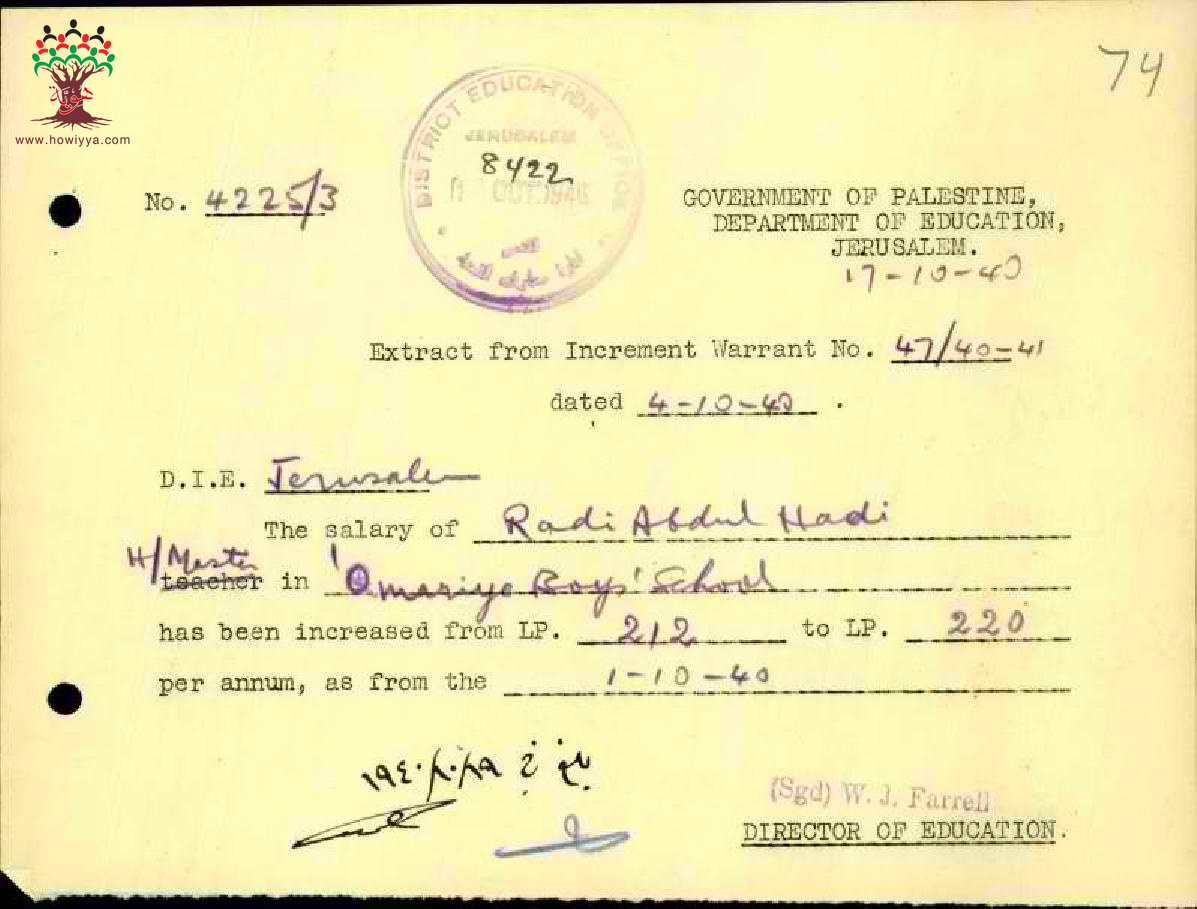 هوية
www.howiyya.com
74
DISTRICT EDUCATION OFFICE
JERUSALEM
8422
OCT 1940
القدس
No. 4225/3
GOVERNMENT OF PALESTINE,
DEPARTMENT OF EDUCATION,
JERUSALEM.
17-10-40
Extract from Increment Warrant No. 47/40-41
dated 4-10-40 .
D.I.E. Jerusalem
The salary of Radi Abdul Hadi
H/Master
teacher in 'Omariye Boys' School
has been increased from LP. 212 to LP. 220
per annum, as from the 1-10-40
(Sgd) W. J. Farrell
DIRECTOR OF EDUCATION.